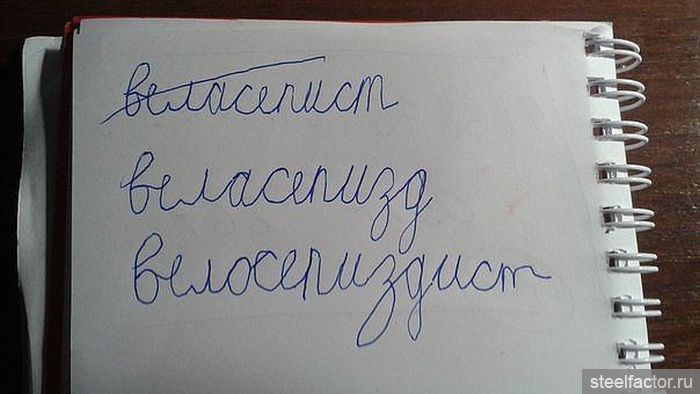 веласепист
веласепизд
велосепиздист
steelfactor.ru